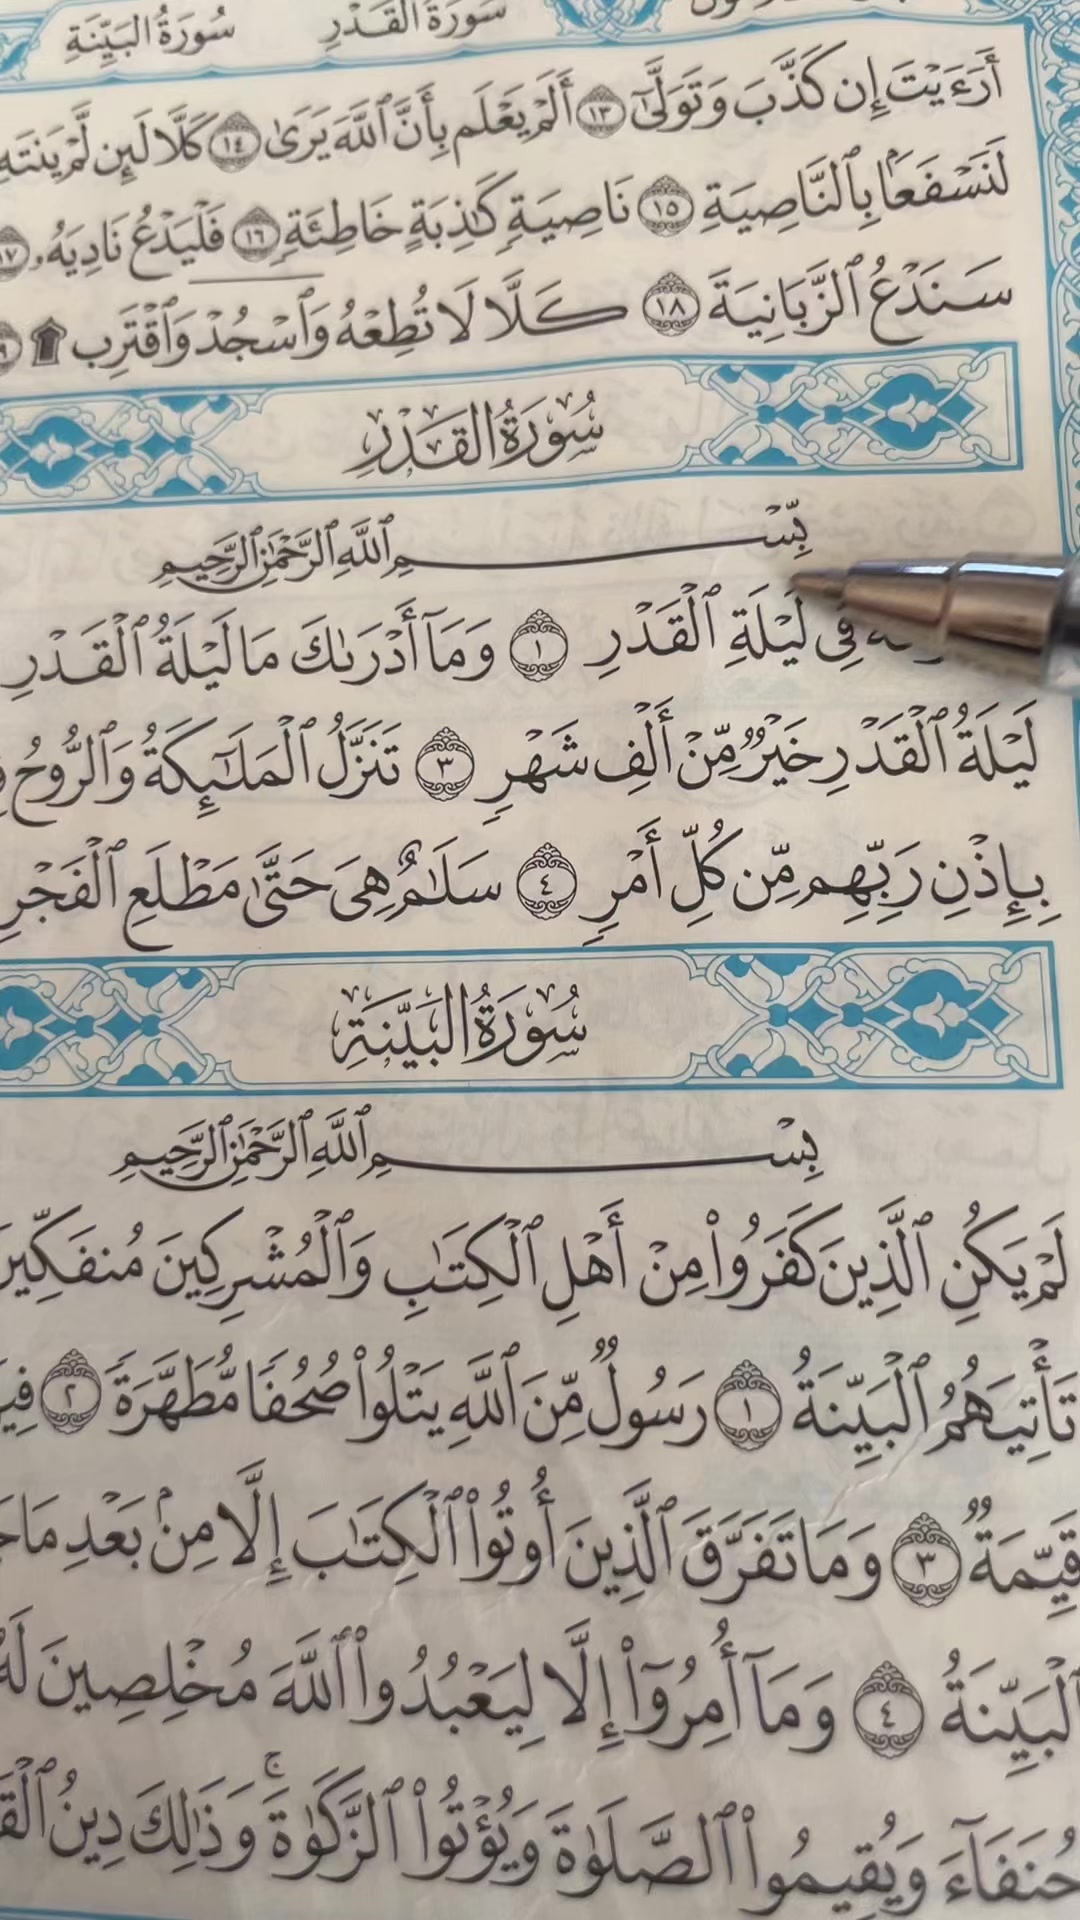 سُورَةُ القَدْرِ سُورَةُ البَيِّنَةِ
أَرَءَيْتَ إِن كَذَّبَ وَتَوَلَّىٰٓ ١٣ أَلَمْ يَعْلَم بِأَنَّ ٱللَّهَ يَرَىٰ ١٤ كَلَّا لَئِن لَّمْ يَنتَهِ
لَنَسْفَعَۢا بِٱلنَّاصِيَةِ ١٥ نَاصِيَةٍ كَٰذِبَةٍ خَاطِئَةٍ ١٦ فَلْيَدْعُ نَادِيَهُۥ ١٧
سَنَدْعُ ٱلزَّبَانِيَةَ ١٨ كَلَّا لَا تُطِعْهُ وَٱسْجُدْ وَٱقْتَرِب ۩
سُورَةُ القَدْرِ
بِّسْمِ ٱللَّهِ ٱلرَّحْمَٰنِ ٱلرَّحِيمِ
فِى لَيْلَةِ ٱلْقَدْرِ ١ وَمَآ أَدْرَىٰكَ مَا لَيْلَةُ ٱلْقَدْرِ
لَيْلَةُ ٱلْقَدْرِ خَيْرٌ مِّنْ أَلْفِ شَهْرٍ ٣ تَنَزَّلُ ٱلْمَلَٰٓئِكَةُ وَٱلرُّوحُ
بِإِذْنِ رَبِّهِم مِّن كُلِّ أَمْرٍ ٤ سَلَٰمٌ هِىَ حَتَّىٰ مَطْلَعِ ٱلْفَجْرِ
سُورَةُ البَيِّنَةِ
بِسْمِ ٱللَّهِ ٱلرَّحْمَٰنِ ٱلرَّحِيمِ
لَمْ يَكُنِ ٱلَّذِينَ كَفَرُوا۟ مِنْ أَهْلِ ٱلْكِتَٰبِ وَٱلْمُشْرِكِينَ مُنفَكِّينَ
تَأْتِيَهُمُ ٱلْبَيِّنَةُ ١ رَسُولٌ مِّنَ ٱللَّهِ يَتْلُوا۟ صُحُفًا مُّطَهَّرَةً ٢
قَيِّمَةٌ ٣ وَمَا تَفَرَّقَ ٱلَّذِينَ أُوتُوا۟ ٱلْكِتَٰبَ إِلَّا مِنۢ بَعْدِ مَا
ٱلْبَيِّنَةُ ٤ وَمَآ أُمِرُوٓا۟ إِلَّا لِيَعْبُدُوا۟ ٱللَّهَ مُخْلِصِينَ لَهُ
حُنَفَآءَ وَيُقِيمُوا۟ ٱلصَّلَوٰةَ وَيُؤْتُوا۟ ٱلزَّكَوٰةَ ۚ وَذَٰلِكَ دِينُ